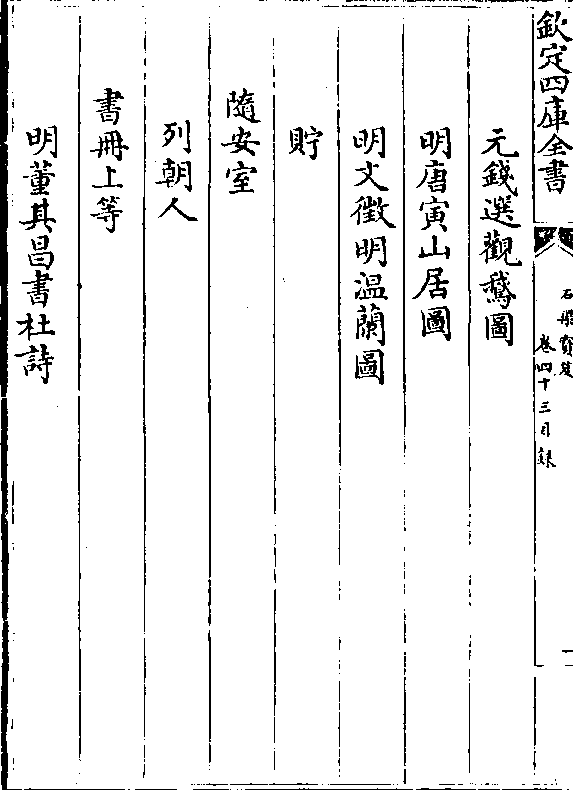 欽定四庫全書
石渠寶笈
卷四十三目錄
一
元錢選觀鵞圖
明唐寅山居圖
明文徵明溫蘭圖
貯
隨安室
列朝人
書冊上等
明董其昌書杜詩